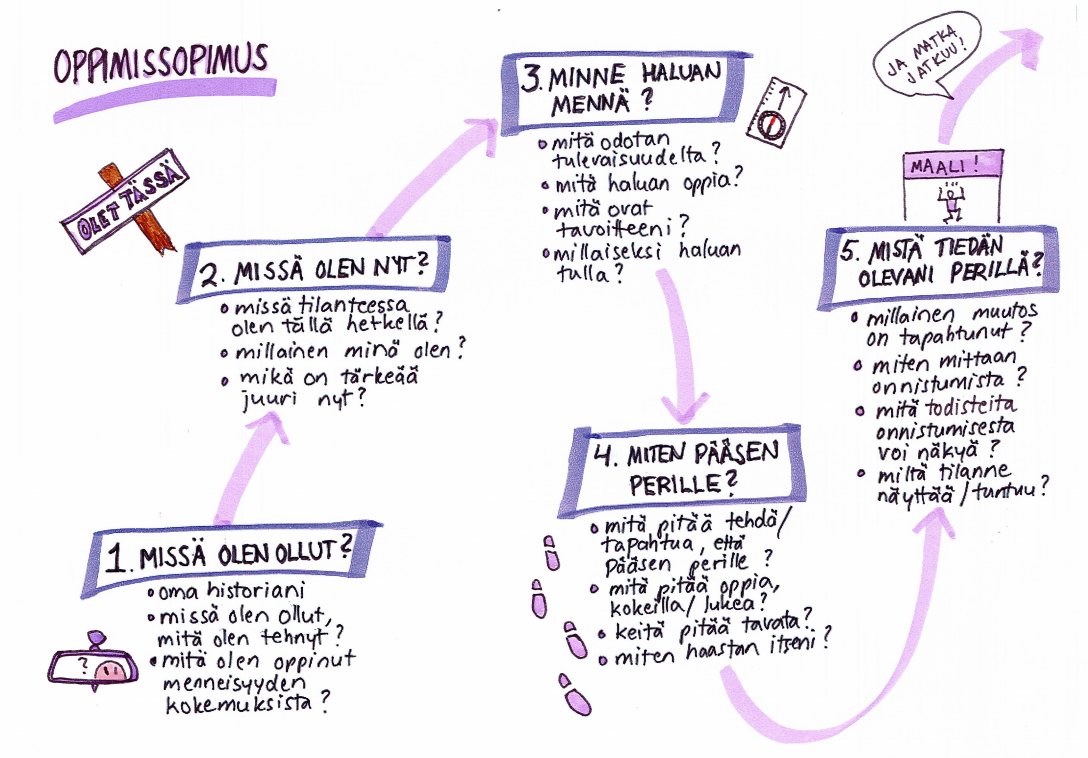 OPPIMISSOPIMUS
OLET TÄSSÄ
1. MISSÄ OLEN OLLUT?
• oma historiani
• missä olen ollut,
mitä olen tehnyt?
• mitä olen oppinut
menneisyyden
kokemuksista?
?
2. MISSÄ OLEN NYT?
• missä tilanteessa
olen tällä hetkellä?
• millainen minä olen?
• mikä on tärkeää
juuri nyt?
3. MINNE HALUAN
MENNÄ?
• mitä odotan
tulevaisuudelta?
• mitä haluan oppia?
• mitä ovat
tavoitteeni?
• millaiseksi haluan
tulla?
4. MITEN PÄÄSEN
PERILLE?
• mitä pitää tehdä/
tapahtua, että
pääsen perille?
• mitä pitää oppia,
kokeilla/lukea?
• keitä pitää tavata?
• miten haastan itseni?
5. MISTÄ TIEDÄN
OLEVANI PERILLÄ?
• millainen muutos
on tapahtunut?
• miten mittaan
onnistumista?
• mitä todisteita
onnistumisesta
voi näkyä?
• miltä tilanne
näyttää/tuntuu?
MAALI!
JA MATKA
JATKUU!